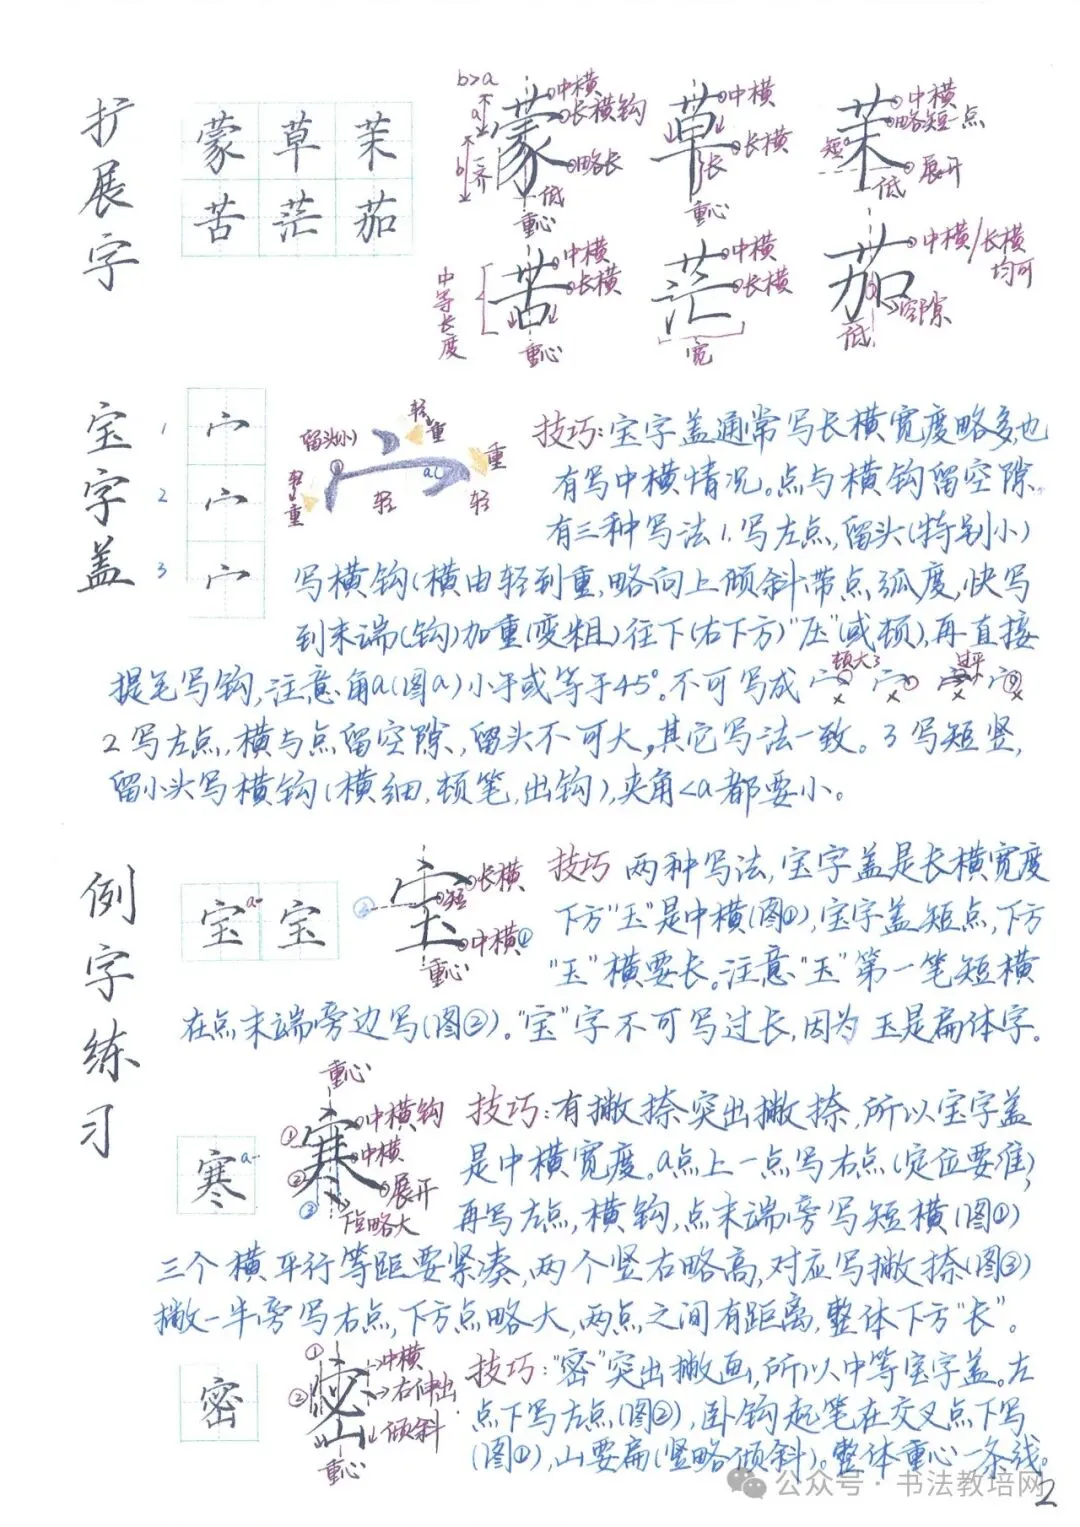 扩展字
蒙草茉
苦茫茄
b>a
a
b
一齐
中横
长横钩
略长
低
重心
中横
长横
长
重心
中横
略短一点
短
展开
低
中等长度
中横
长横
重心
中横
长横
宽
中横/长横
均可
空隙
低
宝字盖
1 宀
2 宀
3 宀
留头(小)
轻
重
轻
重
重
轻
轻
a
技巧:宝字盖通常写长横宽度略多,也
有写中横情况。点与横钩留空隙.
有三种写法1.写左点,留头(特别小)
写横钩(横由轻到重,略向上倾斜带点弧度,快写
到末端(钩)加重(变粗)往下(右下方)"压"(或顿),再直接
提笔写钩,注意角a(图a)小于或等于45°。不可写成
顿大了
过平
2写左点,横与点留空隙,留头不可大,其它写法一致。3写短竖,
留小头写横钩(横细.顿笔,出钩),夹角<a都要小。
例字练习
宝 宝
a
宝
②
长横
短
中横①
重心
技巧 两种写法,宝字盖是长横宽度
下方"玉"是中横(图①),宝字盖短点,下方
"玉"横要长。注意"玉"第一笔短横
在点末端旁边写(图②)。"宝"字不可写过长,因为玉是扁体字。
寒
a
重心
寒
①
②
③
中横钩
中横
展开
下点略大
技巧:有撇捺突出撇捺,所以宝字盖
是中横宽度。a点上一点写右点(定位要准)
再写左点,横钩,点末端旁写短横(图①)
三个横平行等距要紧凑,两个竖右略高,对应写撇捺(图③)
撇一半旁写右点,下方点略大,两点之间有距离,整体下方"长"。
密
密
①
②
中横
右伸出
倾斜
重心
技巧:"密"突出撇画,所以中等宝字盖。左
点下写左点(图②),卧钩起笔在交叉点下写
(图①),山要扁(竖略倾斜)。整体重心一条线。
公众号·书法教培网
2